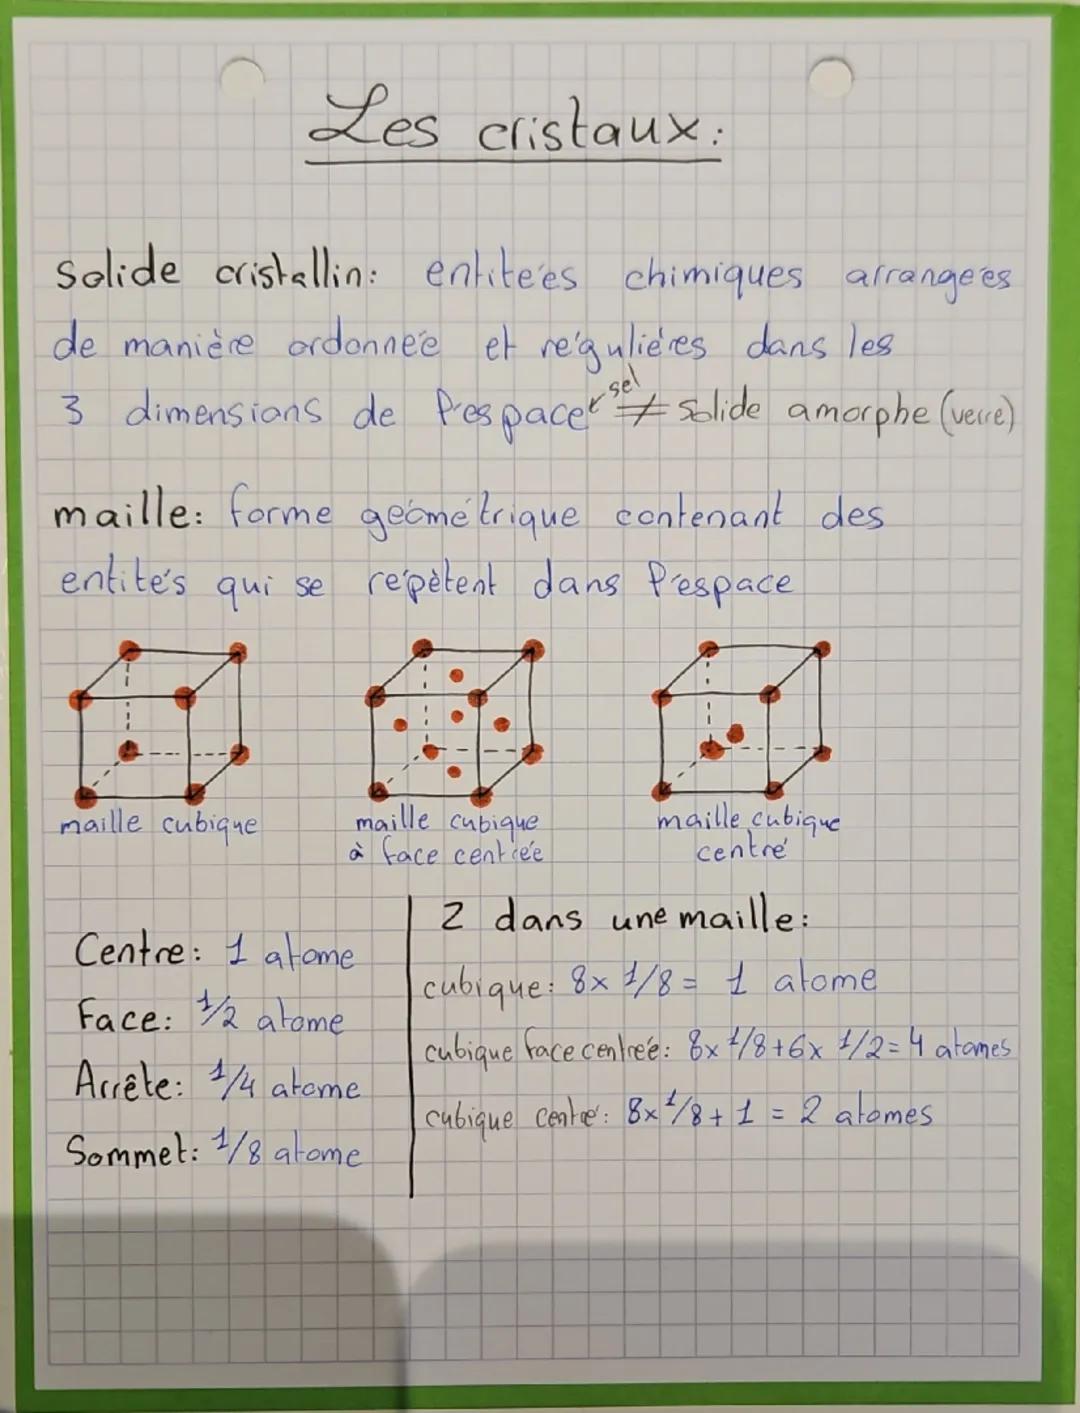 Les cristaux:
solide cristallin: entiteés chimiques arrangeés
de manière ordonneé et réguliéres dans les
3 dimensions de l'espace sel ≠ solide amorphe (verre)
maille: forme géométrique contenant des
entités qui se répètent dans l'espace
maille cubique
maille cubique
à face centreé
maille cubique
centré
Centre: 1 atome
Face: 1/2 atome
Arrête: 1/4 atome
Sommet: 1/8 atome
2 dans une maille:
cubique: 8x 1/8 = 1 atome
cubique face centreé: 8x 1/8+6x 1/2=4 atomes
cubique centré: 8x 1/8 + 1 = 2 atomes